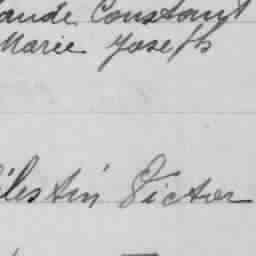 aude Constant
Marie Joseph
élestin Victor